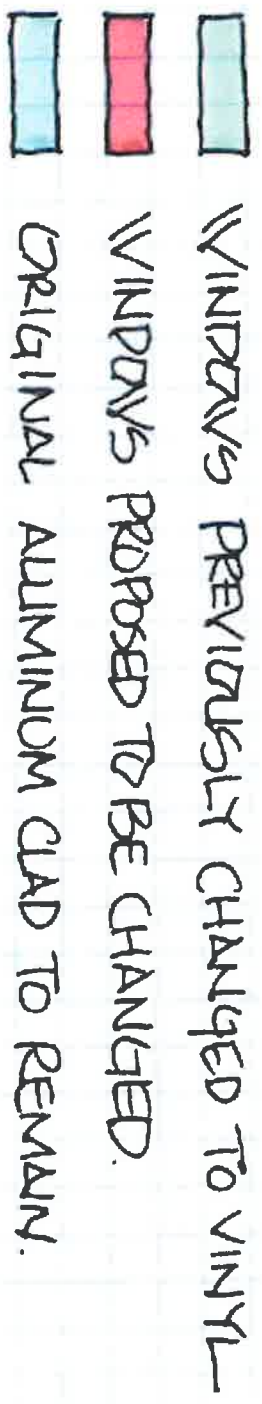 WINDOWS PREVIOUSLY CHANGED TO VINYL
WINDOWS PROPOSED TO BE CHANGED.
ORIGINAL ALUMINUM CLAD TO REMAIN.